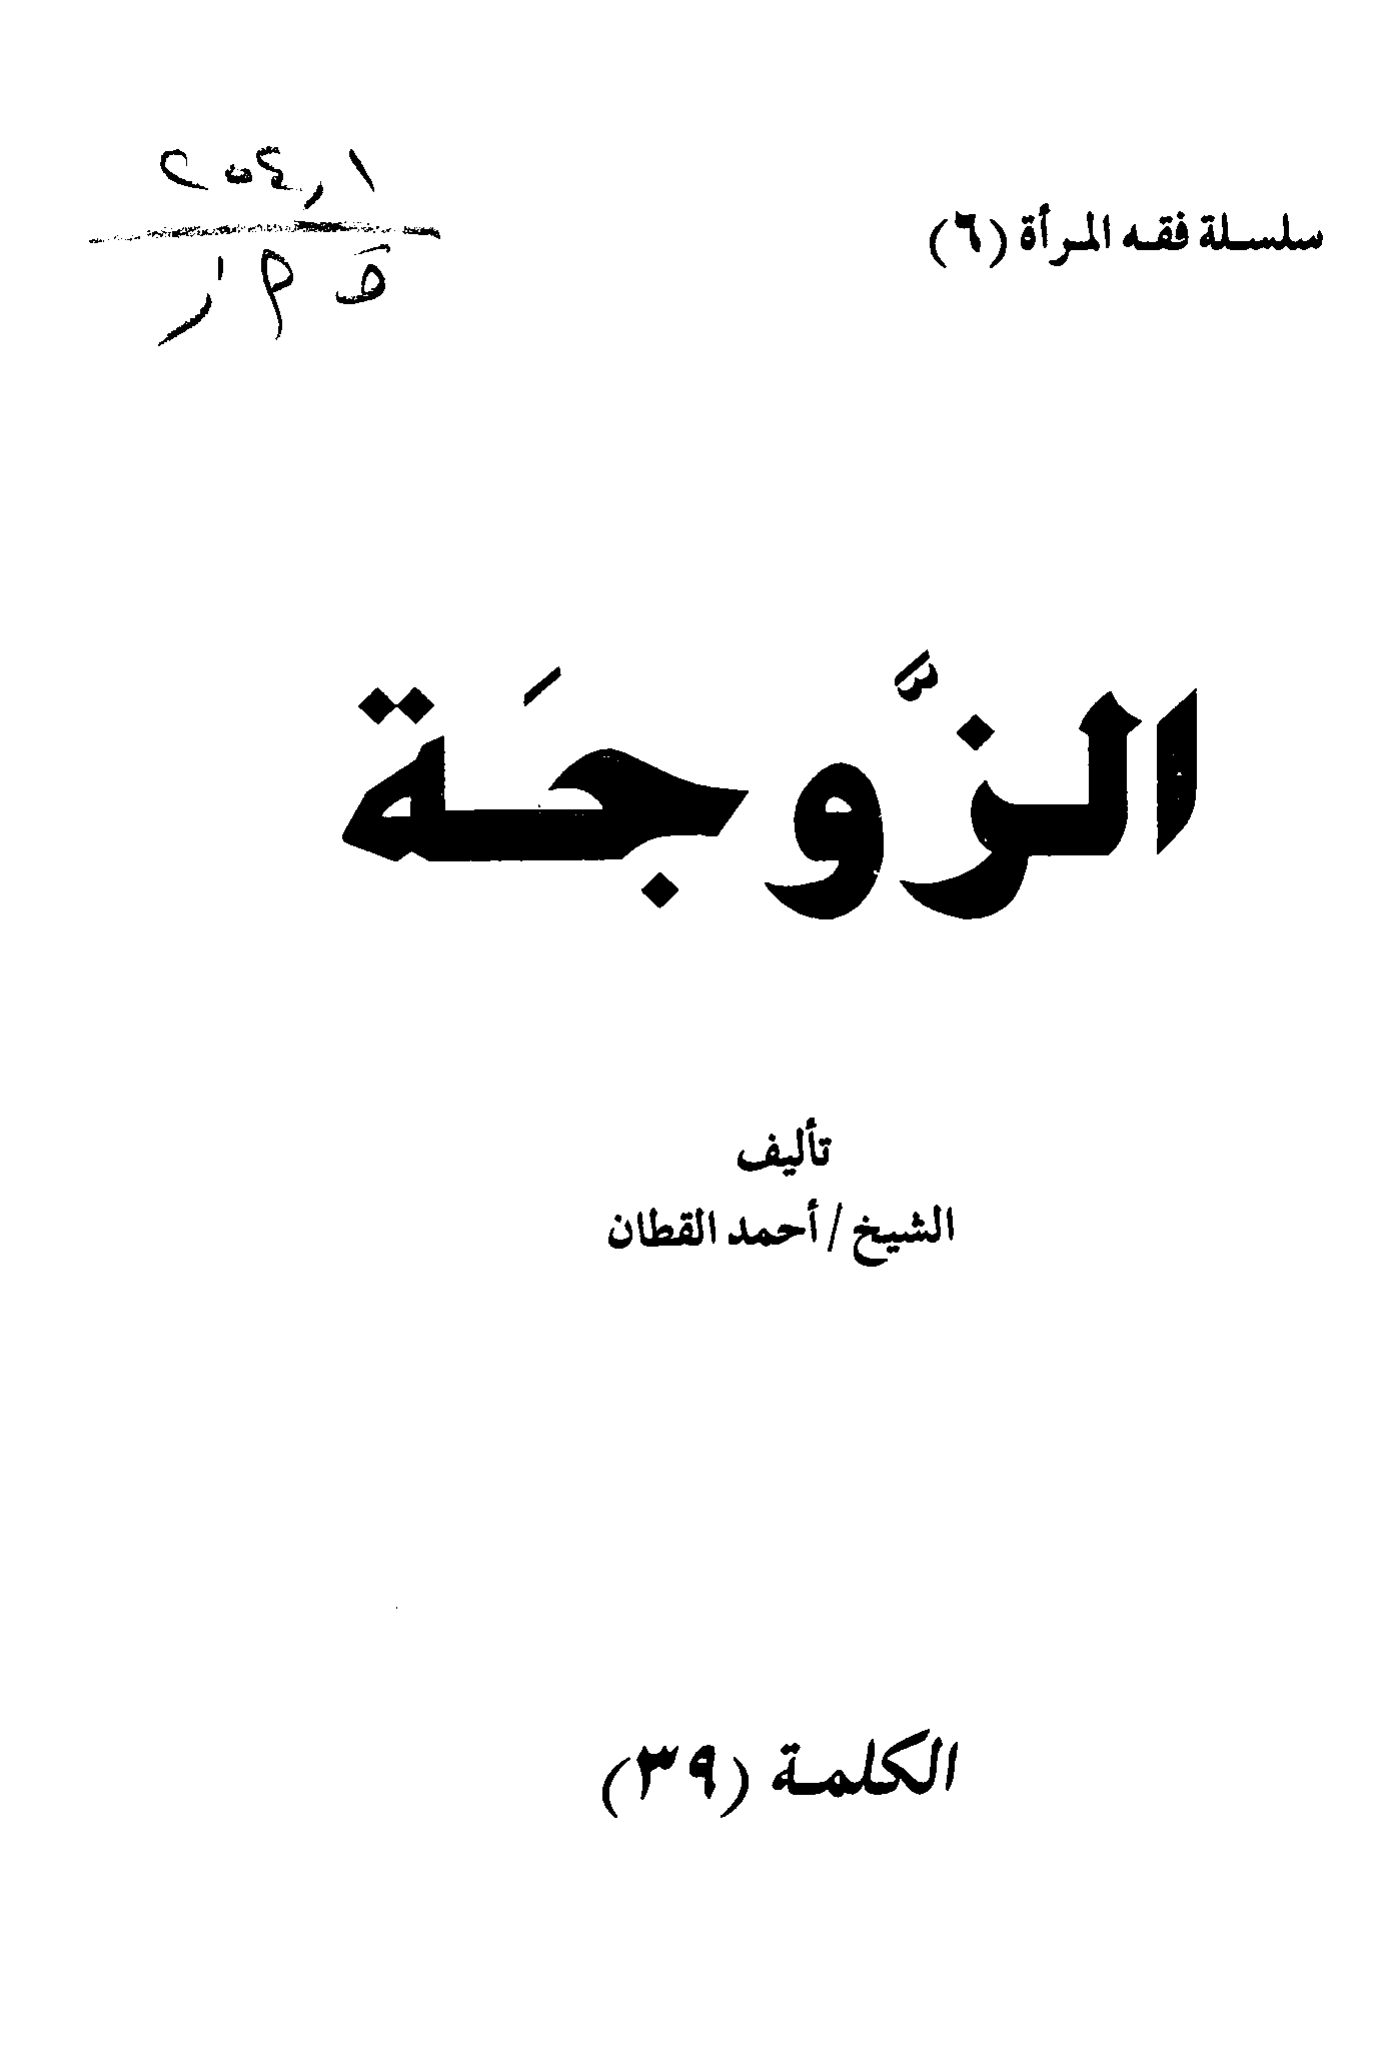 سلسلة فقه المرأة (٦)
٢٥٤,١
الزَّوجَة
تأليف
الشيخ / أحمد القطان
الكلمة (٣٩)